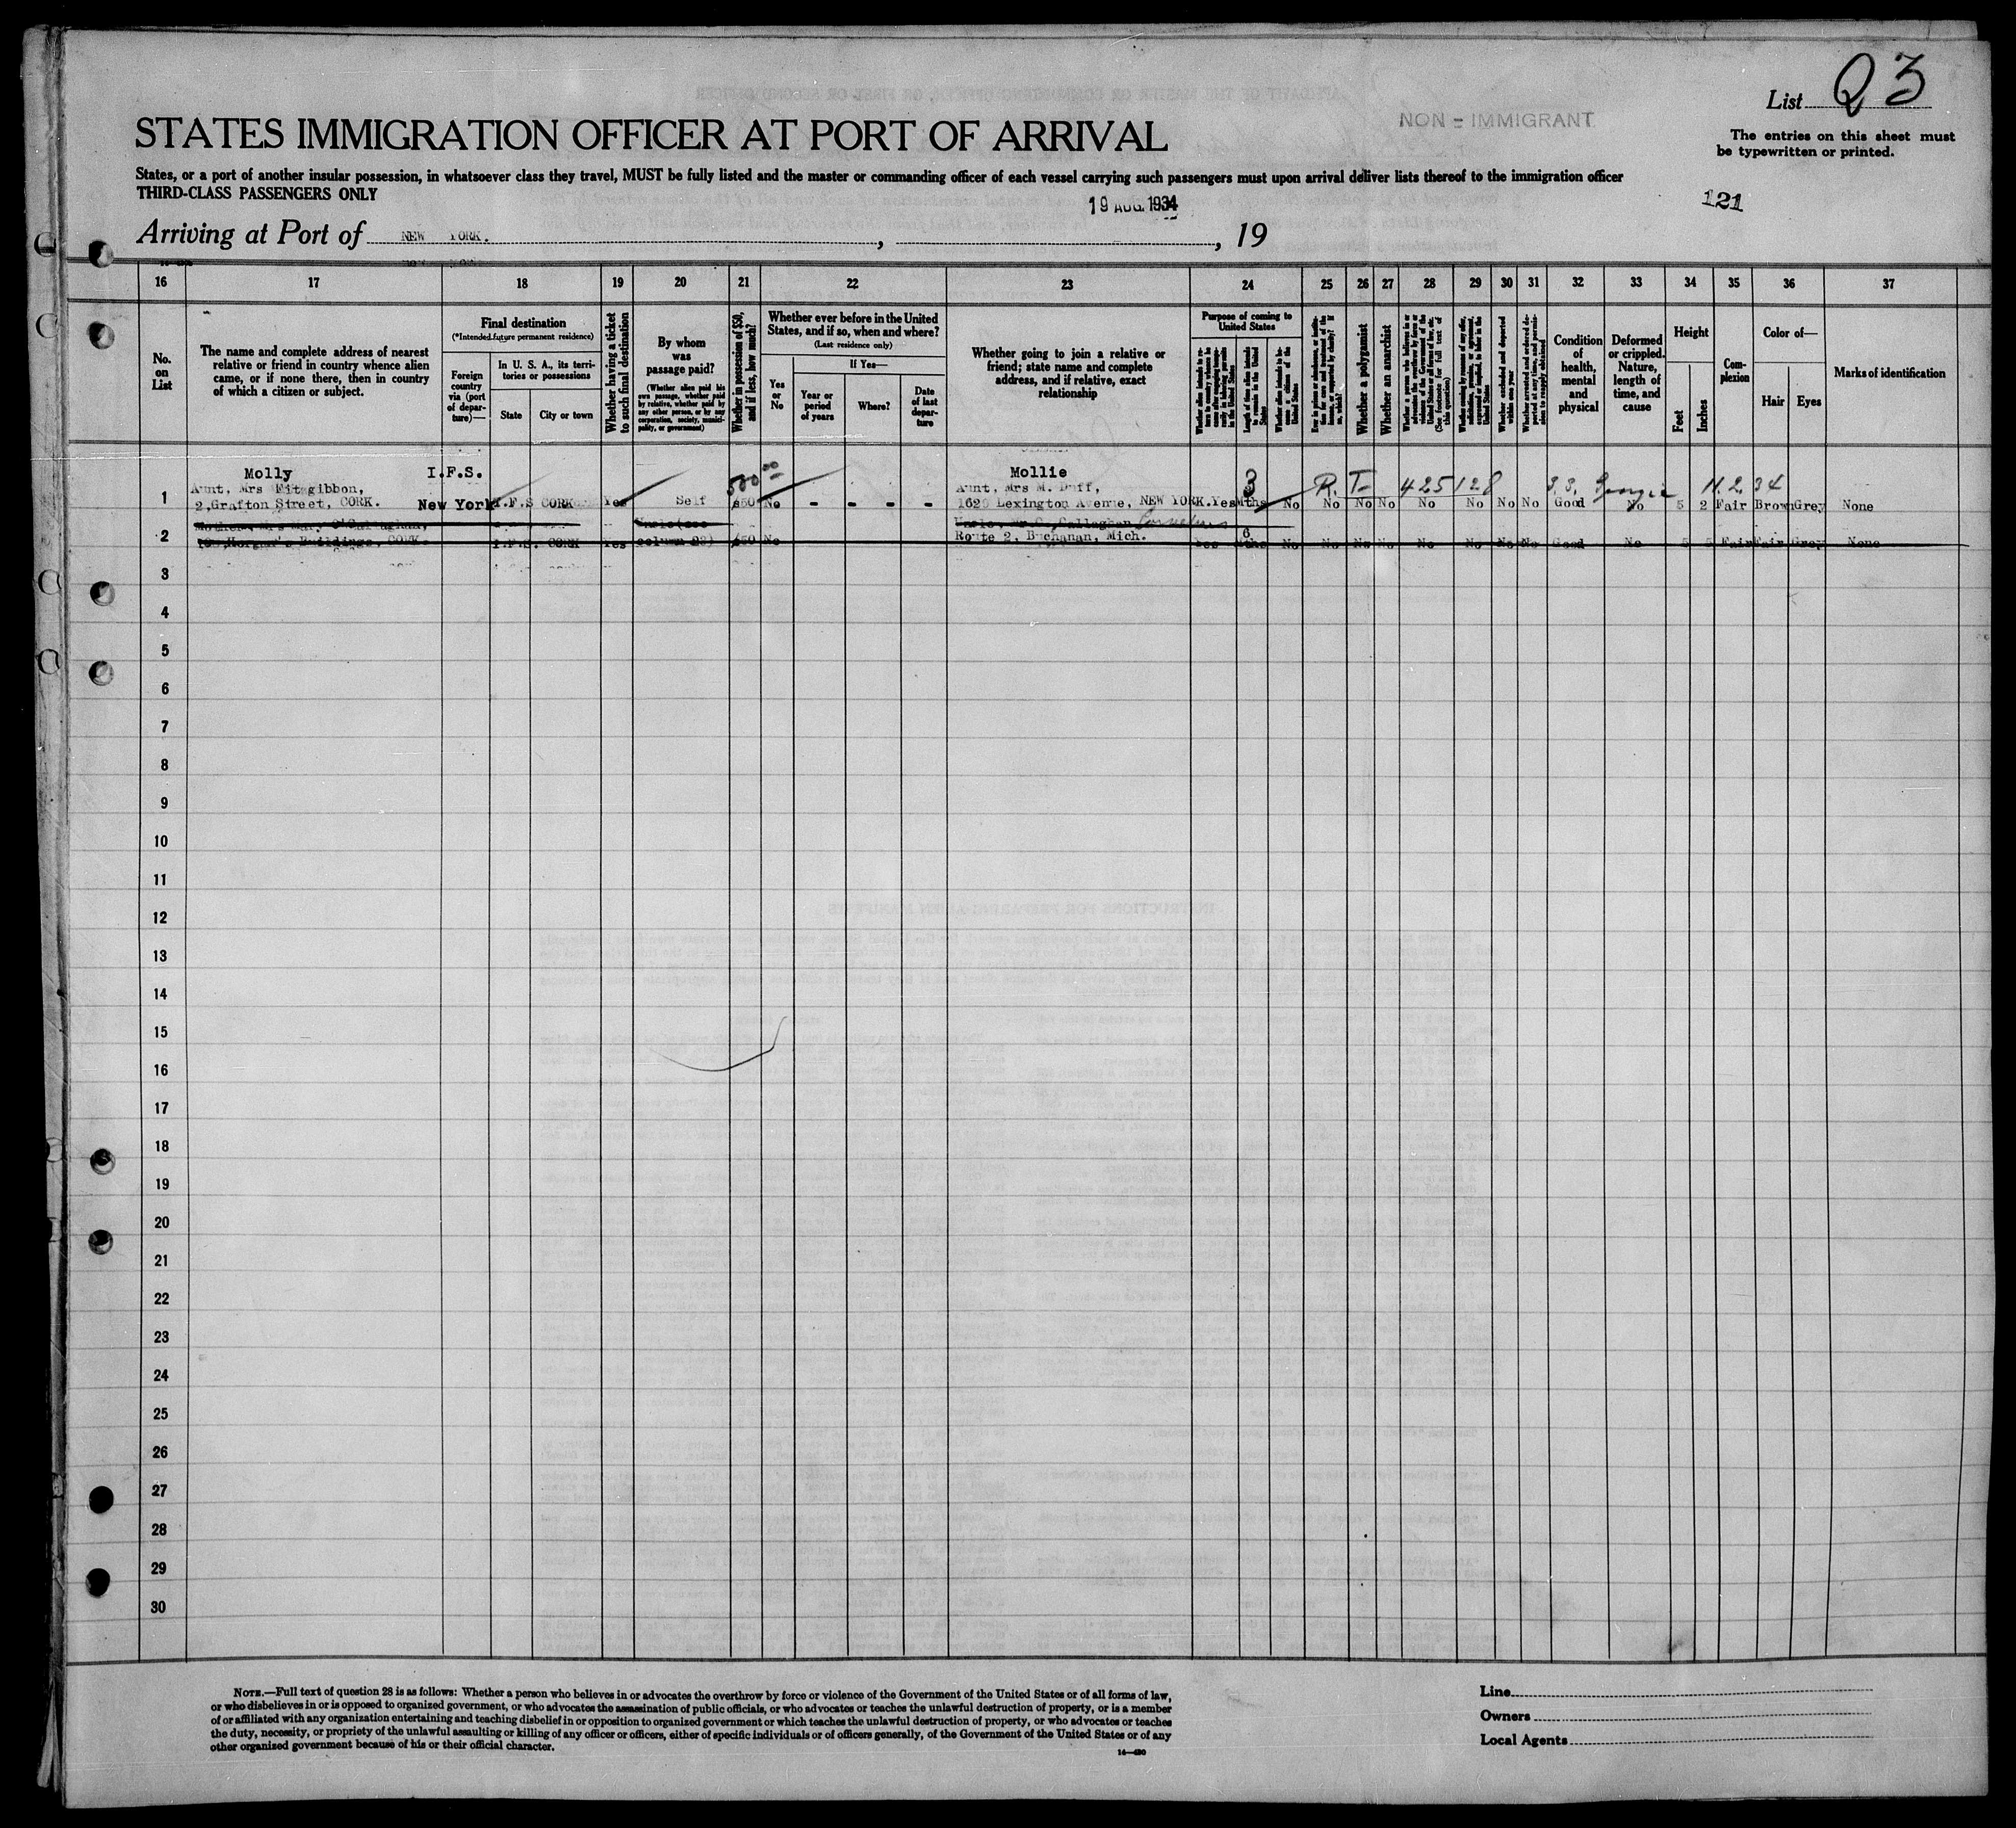 List 23
NON - IMMIGRANT
STATES IMMIGRATION OFFICER AT PORT OF ARRIVAL
The entries on this sheet must
be typewritten or printed.
States, or a port of another insular possession, in whatsoever class they travel, MUST be fully listed and the master or commanding officer of each vessel carrying such passengers must upon arrival deliver lists thereof to the immigration officer
THIRD-CLASS PASSENGERS ONLY
121
19 AUG. 1934
Arriving at Port of NEW YORK. , , 19
16 17 18 19 20 21 22 23 24 25 26 27 28 29 30 31 32 33 34 35 36 37
No. on List
The name and complete address of nearest
relative or friend in country whence alien
came, or if none there, then in country
of which a citizen or subject.
Final destination
(*Intended future permanent residence)
Foreign
country
via (port
of depar-
ture)—
In U. S. A., its terri-
tories or possessions
State City or town
Whether having a ticket
to such final destination
By whom
was
passage paid?
(Whether alien paid his
own passage, whether paid
by relative, whether paid by
any other person, or by any
corporation, society, munici-
pality, or government)
Whether in possession of $50,
and if less, how much?
Whether ever before in the United
States, and if so, when and where?
(Last residence only)
Yes
or
No
If Yes—
Year or
period
of years
Where?
Date
of last
depar-
ture
Whether going to join a relative or
friend; state name and complete
address, and if relative, exact
relationship
Purpose of coming to
United States
Whether alien intends to re-
turn to country whence he
came after engaging tempo-
rarily in laboring pursuits
in the United States
Length of time alien intends
to remain in the United
States
Whether alien intends to be-
come a citizen of the
United States
Whether a polygamist
Whether an anarchist
(See footnote for full text of
this question)
Whether excluded and deported
within one year
Condition
of
health,
mental
and
physical
Deformed
or crippled.
Nature,
length of
time, and
cause
Height
Feet Inches
Com-
plexion
Color of—
Hair Eyes
Marks of identification
Molly I.F.S. 500 00 Mollie 3 R. T- 425128 11.2.34
Aunt, Mrs Fitzgibbon, Aunt, Mrs M. Duff,
1 2,Grafton Street, CORK. New York I.F.S CORK Yes Self £50 No - - - - 1629 Lexington Avenue, NEW YORK. Yes Mths No No No No No No No No Good No 5 2 Fair Brown Grey None
Mother, Mrs Mary O'Callaghan, Uncle (see Uncle, Mr C. Callaghan Cornelius
2 Morgan's Buildings, CORK. I.F.S. CORK Yes column 23) £50 No Route 2, Buchanan, Mich. Yes 6 Mths No No No No No No No No Good No 5 5 Fair Fair Grey None
3
4
5
6
7
8
9
10
11
12
13
14
15
16
17
18
19
20
21
22
23
24
25
26
27
28
29
30
NOTE.—Full text of question 28 is as follows: Whether a person who believes in or advocates the overthrow by force or violence of the Government of the United States or of all forms of law,
or who disbelieves in or is opposed to organized government, or who advocates the assassination of public officials, or who advocates or teaches the unlawful destruction of property, or is a member
of or affiliated with any organization entertaining and teaching disbelief in or opposition to organized government or which teaches the unlawful destruction of property, or who advocates or teaches
the duty, necessity, or propriety of the unlawful assaulting or killing of any officer or officers, either of specific individuals or of officers generally, of the Government of the United States or of any
other organized government because of his or their official character.
Line
Owners
Local Agents